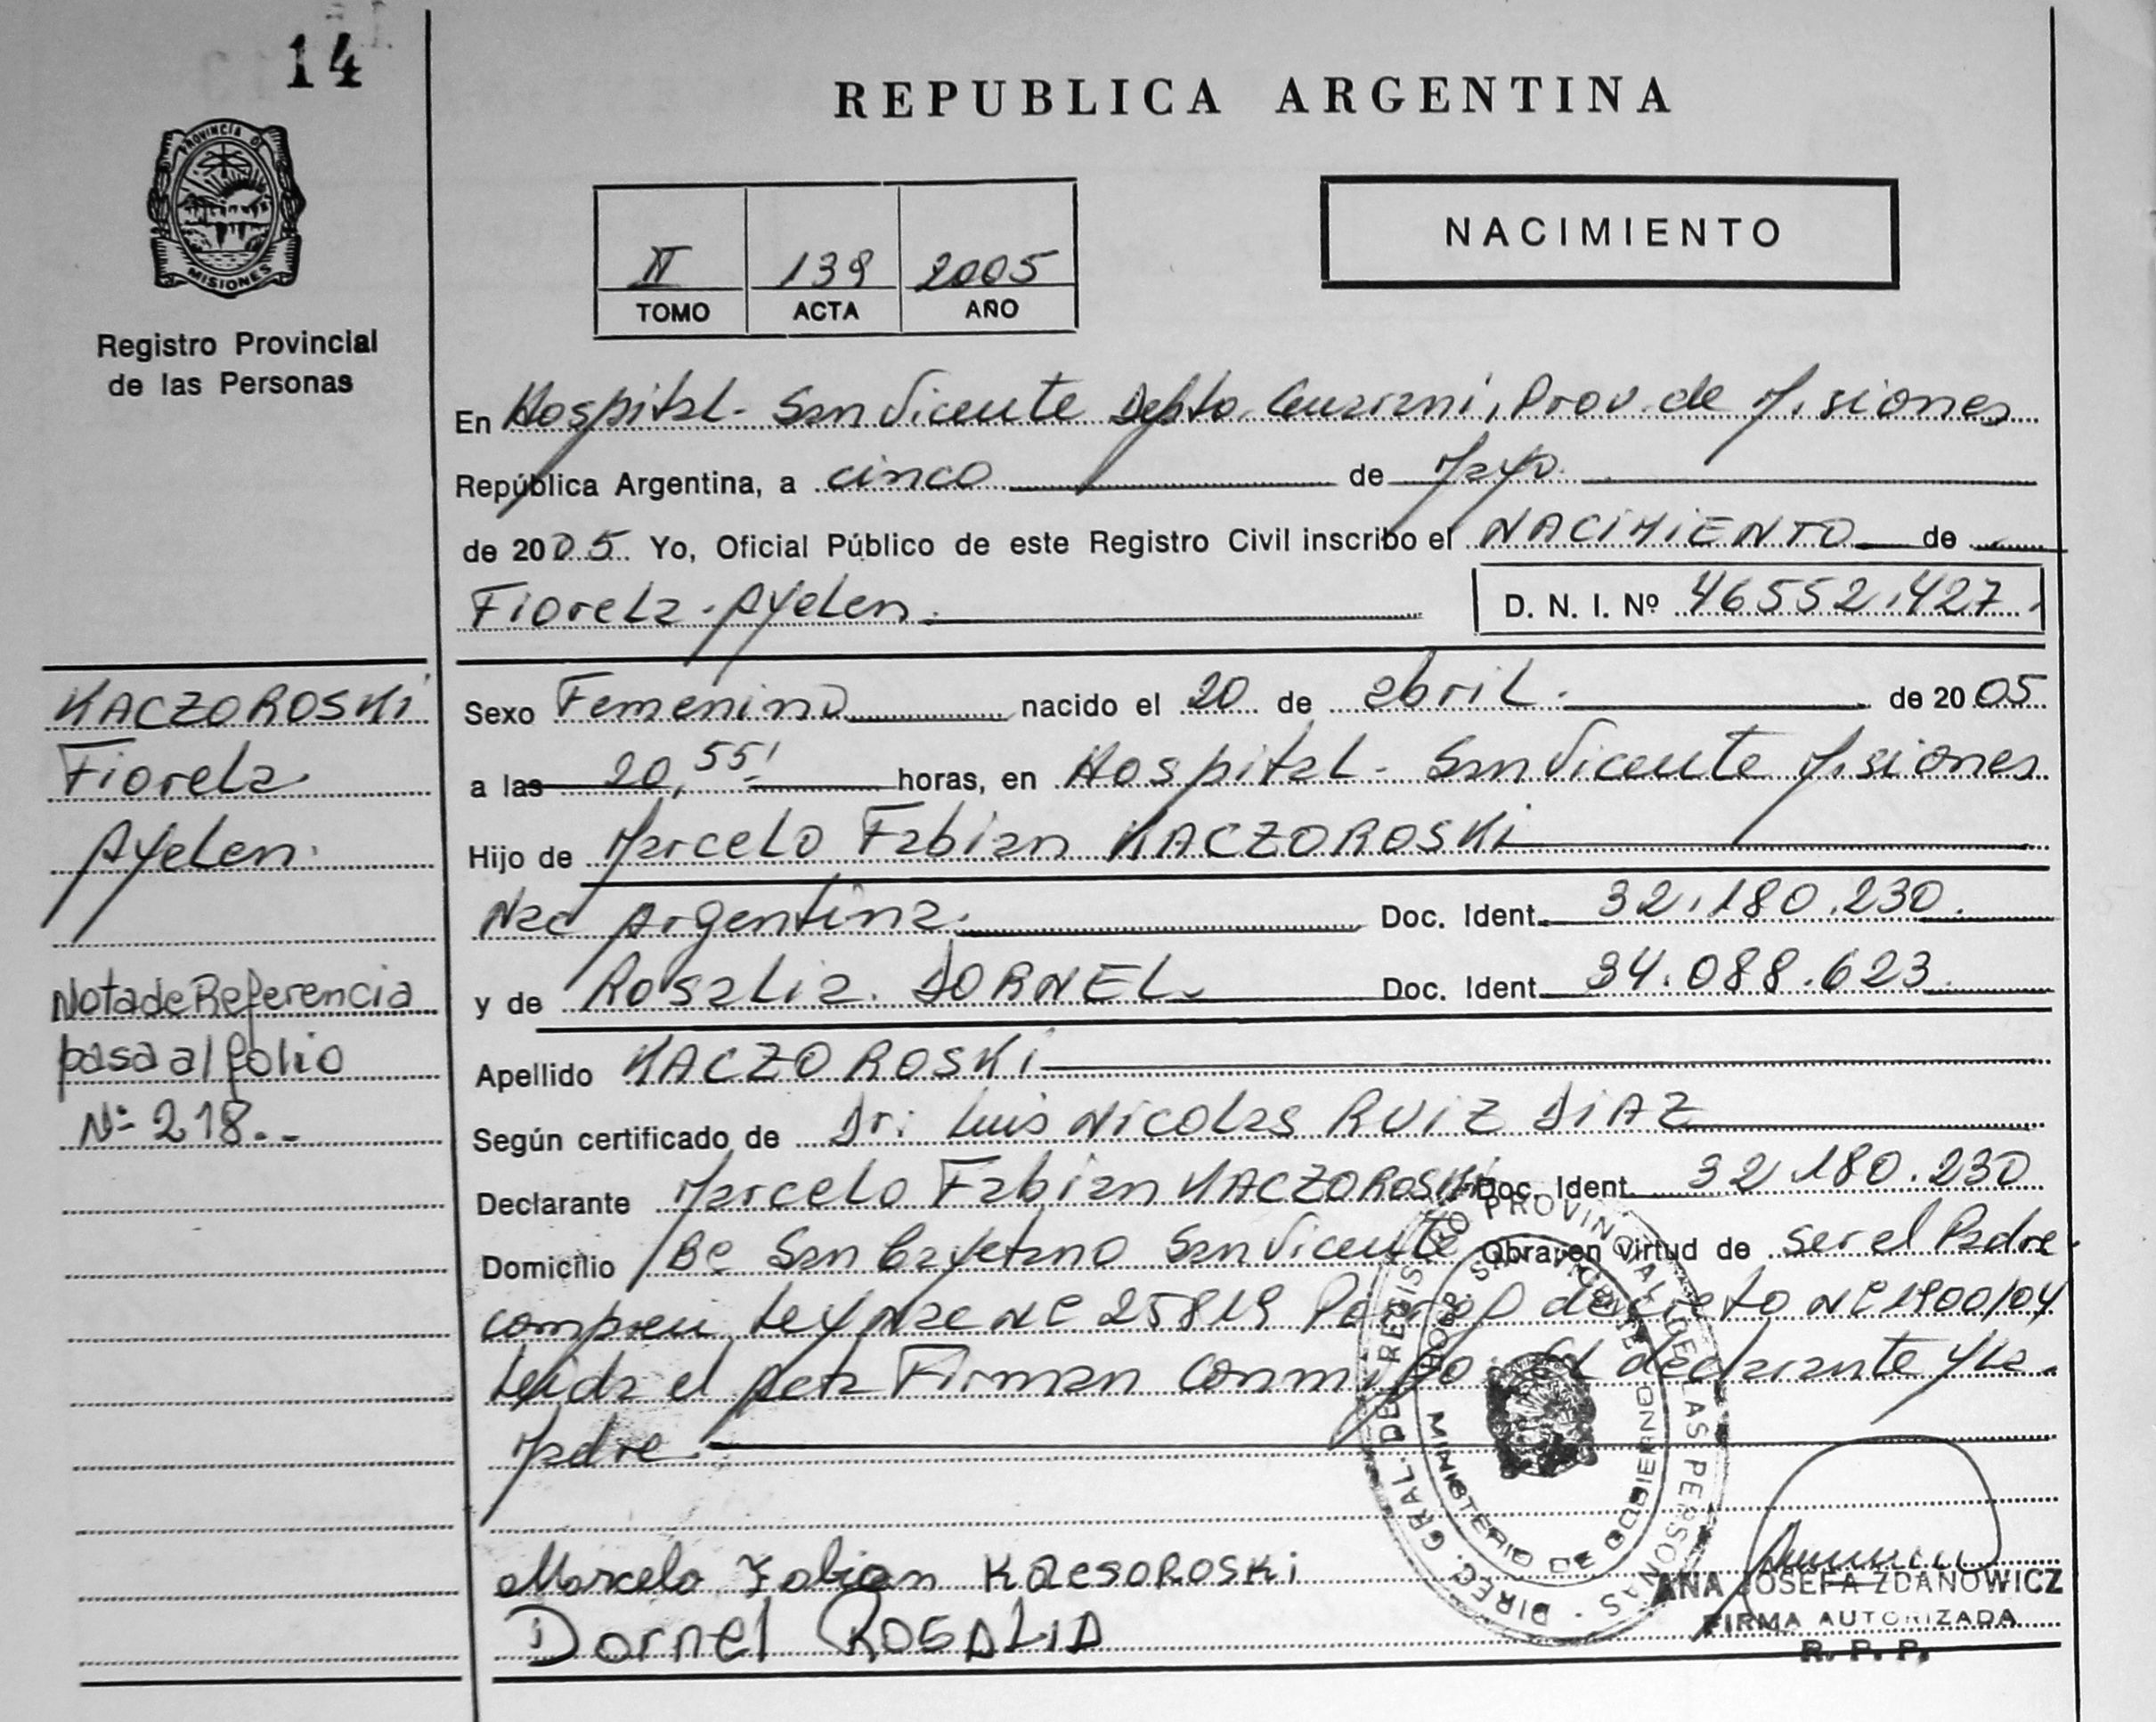 14
REPUBLICA ARGENTINA
PROVINCIA D
MISIONES
Registro Provincial
de las Personas
II 139 2005
TOMO ACTA AÑO
NACIMIENTO
En Hospital - San Vicente Depto. Guarani, Prov. de Misiones
República Argentina, a cinco de Mayo.
de 2005. Yo, Oficial Público de este Registro Civil inscribo el NACIMIENTO de
Fiorela Ayelen. D. N. I. Nº 46552.427.
KACZOROSKi
Fiorela
Ayelen.
Nota de Referencia
pasa al folio
Nº 218..
Sexo Femenino nacido el 20 de abril. de 2005.
a las 20,55' horas, en Hospital - San Vicente Misiones
Hijo de Marcelo Fabian KACZOROSKi
Nac Argentina. Doc. Ident. 32.180.230.
y de Rosalia. DORNEL. Doc. Ident. 34.088.623.
Apellido KACZOROSKi
Según certificado de Dr: Luis Nicolas RUiZ DiAZ
Declarante Marcelo Fabian KACZOROSKi Doc. Ident. 32.180.230
Domicilio Bº San Cayetano San Vicente Obra en virtud de ser el Padre.
Ley Nac Nº 25819 decreto Nº 1900/04
Leida el Acta Firman Conmigo. El declarante y la
Madre.
Marcelo Fabian Kacsoroski
Dornel ROSALIA
DIREC. GRAL. DEL REGISTRO PROVINCIAL DE LAS PERSONAS
SAN VICENTE
MINISTERIO DE GOBIERNO
ANA JOSEFA ZDANOWICZ
FIRMA AUTORIZADA
R. P. P.